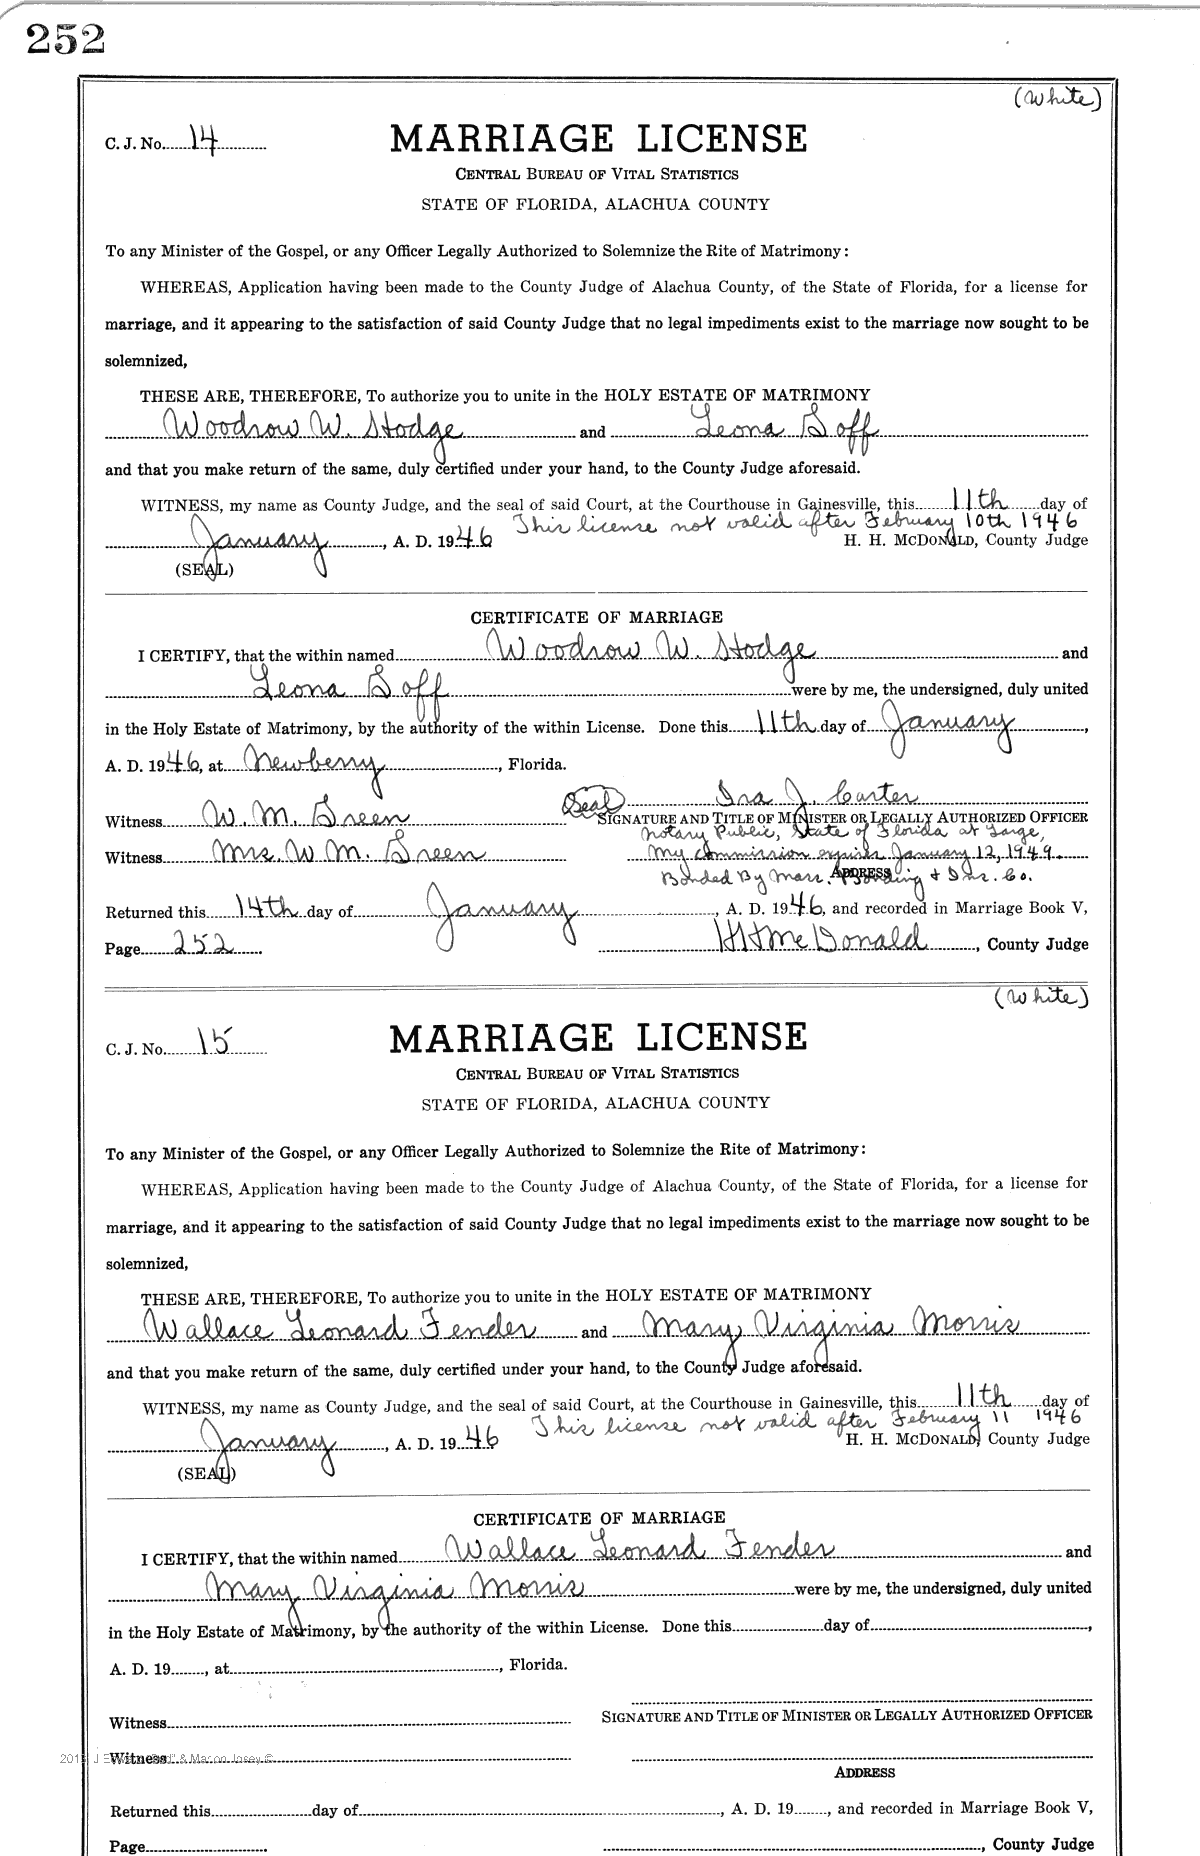 252
(White)
C. J. No. 14 MARRIAGE LICENSE
CENTRAL BUREAU OF VITAL STATISTICS
STATE OF FLORIDA, ALACHUA COUNTY
To any Minister of the Gospel, or any Officer Legally Authorized to Solemnize the Rite of Matrimony:
WHEREAS, Application having been made to the County Judge of Alachua County, of the State of Florida, for a license for
marriage, and it appearing to the satisfaction of said County Judge that no legal impediments exist to the marriage now sought to be
solemnized,
THESE ARE, THEREFORE, To authorize you to unite in the HOLY ESTATE OF MATRIMONY
Woodrow W. Stodge and Leona Goff
and that you make return of the same, duly certified under your hand, to the County Judge aforesaid.
WITNESS, my name as County Judge, and the seal of said Court, at the Courthouse in Gainesville, this 11th day of
This license not valid after February 10th 1946
January, A. D. 1946 H. H. MCDONALD, County Judge
(SEAL)
CERTIFICATE OF MARRIAGE
I CERTIFY, that the within named Woodrow W. Stodge and
Leona Goff were by me, the undersigned, duly united
in the Holy Estate of Matrimony, by the authority of the within License. Done this 11th day of January,
A. D. 1946, at Newberry, Florida.
Seal Ira J. Carter
Witness W. M. Green SIGNATURE AND TITLE OF MINISTER OR LEGALLY AUTHORIZED OFFICER
Notary Public, State of Florida at Large,
Witness Mrs. W. M. Green My commission expires January 12, 1949.
ADDRESS
Bonded By Mass. Bonding & Ins. Co.
Returned this 14th day of January, A. D. 1946, and recorded in Marriage Book V,
Page 252 H H McDonald, County Judge
(White)
C. J. No. 15 MARRIAGE LICENSE
CENTRAL BUREAU OF VITAL STATISTICS
STATE OF FLORIDA, ALACHUA COUNTY
To any Minister of the Gospel, or any Officer Legally Authorized to Solemnize the Rite of Matrimony:
WHEREAS, Application having been made to the County Judge of Alachua County, of the State of Florida, for a license for
marriage, and it appearing to the satisfaction of said County Judge that no legal impediments exist to the marriage now sought to be
solemnized,
THESE ARE, THEREFORE, To authorize you to unite in the HOLY ESTATE OF MATRIMONY
Wallace Leonard Fender and Mary Virginia Morris
and that you make return of the same, duly certified under your hand, to the County Judge aforesaid.
WITNESS, my name as County Judge, and the seal of said Court, at the Courthouse in Gainesville, this 11th day of
This license not valid after February 11 1946
January, A. D. 1946 H. H. MCDONALD, County Judge
(SEAL)
CERTIFICATE OF MARRIAGE
I CERTIFY, that the within named Wallace Leonard Fender and
Mary Virginia Morris were by me, the undersigned, duly united
in the Holy Estate of Matrimony, by the authority of the within License. Done this day of ,
A. D. 19 , at , Florida.
Witness SIGNATURE AND TITLE OF MINISTER OR LEGALLY AUTHORIZED OFFICER
Witness
ADDRESS
Returned this day of , A. D. 19 , and recorded in Marriage Book V,
Page , County Judge